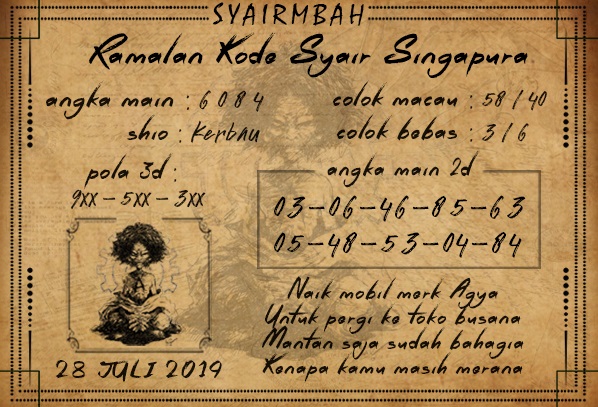 SYAIRMBAH
Ramalan Kode Syair Singapura
angka main : 6084
colok macau : 58 / 40
shio : Kerbau
colok bebas : 3 / 6
pola 3d :
9XX - 5XX - 3XX
angka main 2d
03-06-46-85-63
05-48-53-04-84
Naik mobil merk Agya
Untuk pergi ke toko busana
Mantan saja sudah bahagia
Kenapa kamu masih merana
28 JULI 2019